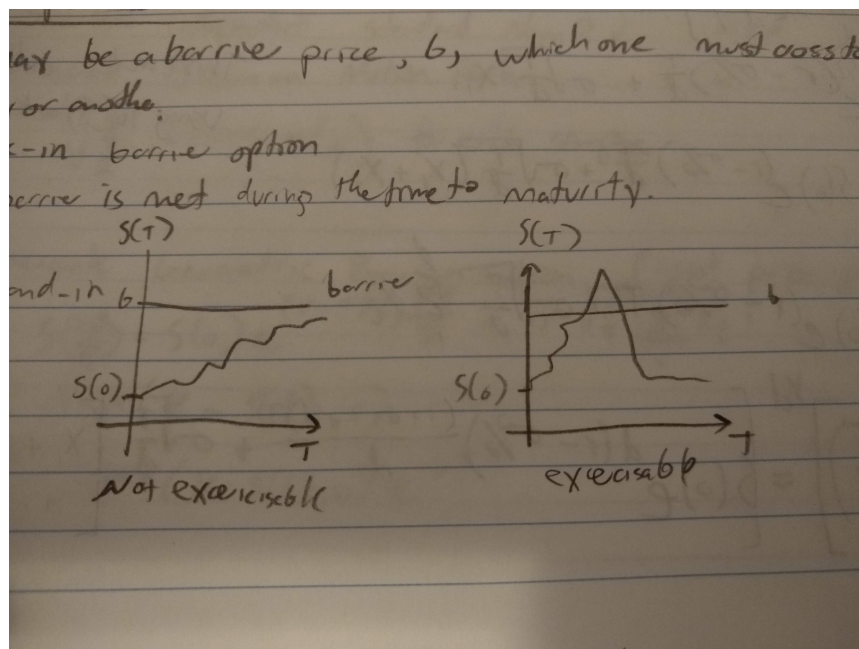 may be a barrie price, b, which one must coss to
or anothe.
-in barrie option
barrie is met during the time to maturity.
S(T) S(T)
and-in b barrier b
S(0) S(0)
T T
Not excericisable excecisabb